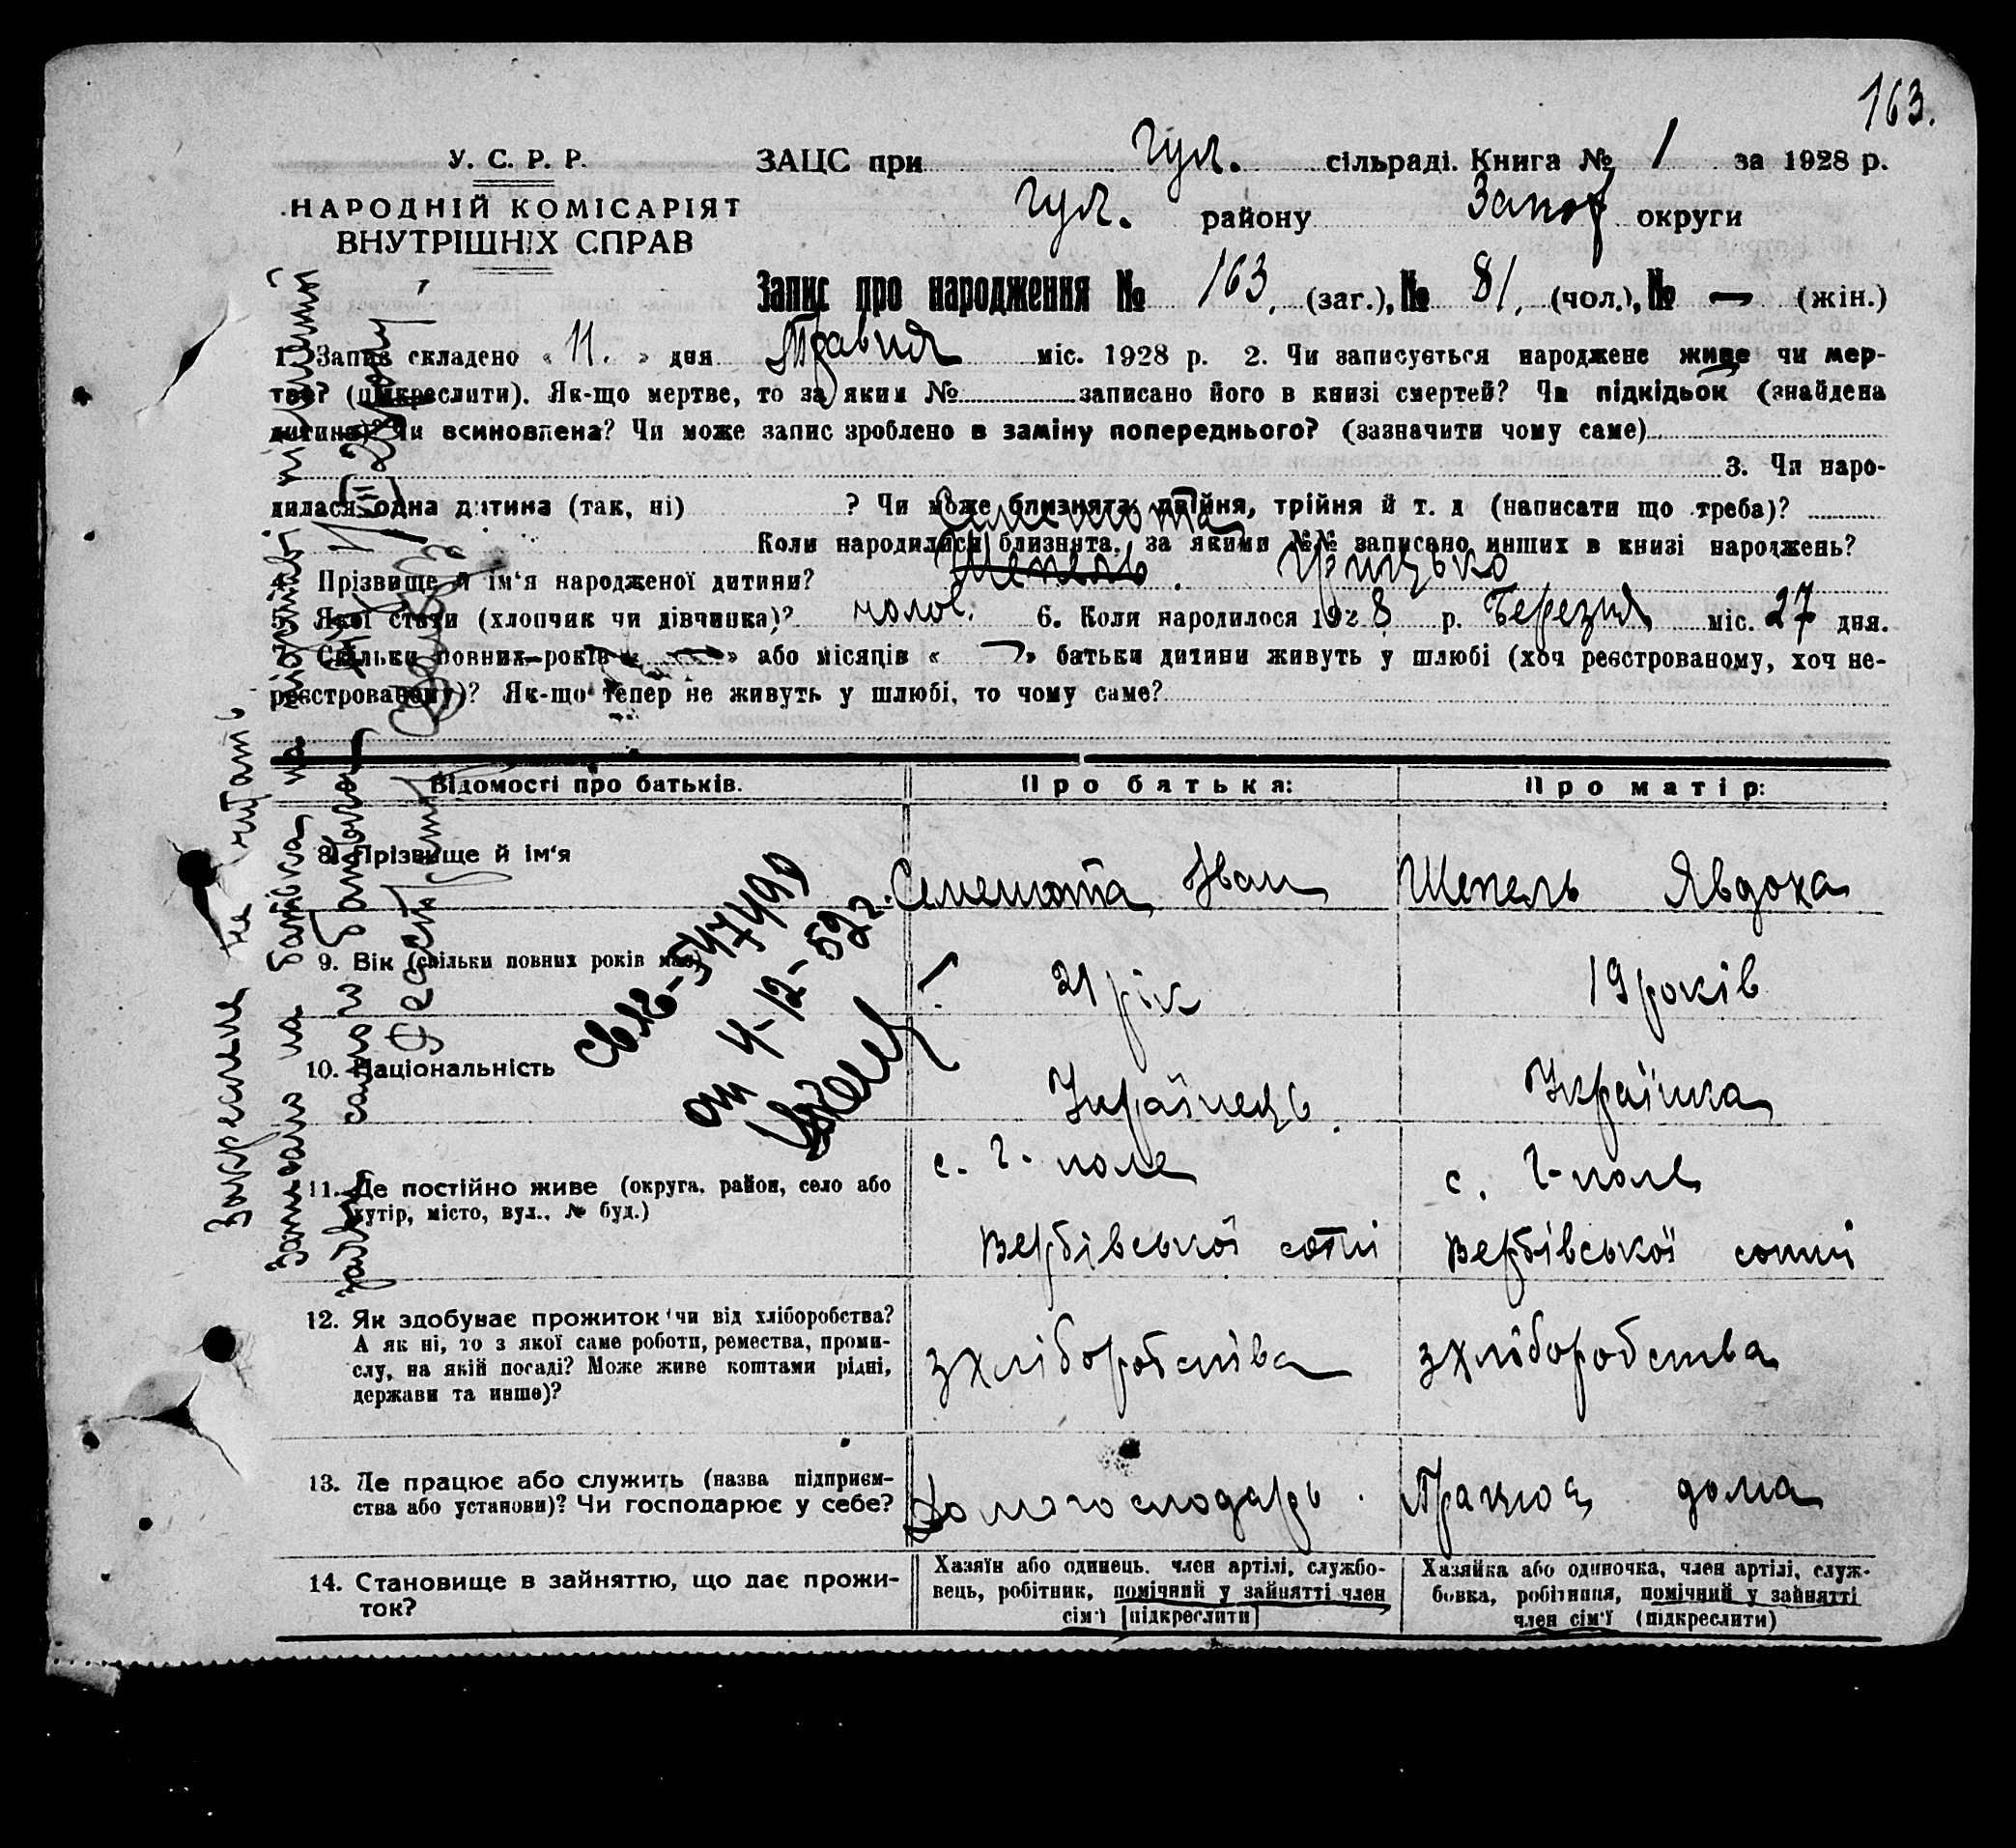 163.
У. С. Р. Р.
НАРОДНІЙ КОМІСАРІЯТ
ВНУТРІШНІХ СПРАВ
ЗАЦС при Гул. сільраді. Книга № 1 за 1928 р.
Гул. району Запор округи
Запис про народження № 163. (заг.), № 81, (чол.), № — (жін.)
1. Запис складено « 11. » дня Травня міс. 1928 р. 2. Чи записується народжене живе чи мер-
тве? (підкреслити). Як-що мертве, то за яким № записано його в книзі смертей? Чи підкідьок (знайдена
дитина)? Чи всиновлена? Чи може запис зроблено в заміну попереднього? (зазначити чому саме)
3. Чи наро-
дилася одна дитина (так, ні) ? Чи може близнята, двійня, трійня й т. д (написати що треба)?
Коли народилися близнята, за якими №№ записано инших в книзі народжень?
Семенюта
4. Прізвище й ім‘я народженої дитини? Шепель. Грицько
5. Якої стати (хлопчик чи дівчинка)? чолов. 6. Коли народилося 1928 р. Березня міс. 27 дня.
7. Скільки повних років « — » або місяців « » батьки дитини живуть у шлюбі (хоч реєстрованому, хоч не-
реєстрованому)? Як-що тепер не живуть у шлюбі, то чому саме?
Відомості про батьків. Про батька: Про матір:
8. Прізвище й ім‘я Семенюта Іван Шепель Явдоха
9. Вік (скільки повних років має) 21 рік 19 років
10. Національність Українець. Українка
11. Де постійно живе (округа, район, село або
хутір, місто, вул., № буд.)
с. Г-поле
Вербівської сотні
с. Г-поле
Вербівської сотні
12. Як здобуває прожиток чи від хліборобства?
А як ні, то з якої саме роботи, ремества, проми-
слу, на якій посаді? Може живе коштами рідні,
держави та инше)?
з хліборобства
з хліборобства
13. Де працює або служить (назва підприєм-
ства або установи)? Чи господарює у себе?
Домогосподарь.
Працює дома
14. Становище в зайняттю, що дає прожи-
ток?
Хазяїн або одинець, член артілі, службо-
вець, робітник, помічний у зайнятті член
сім‘ї [підкреслити]
Хазяйка або одиночка, член артілі, служ-
бовка, робітниця, помічний у зайнятті
член сім‘ї (підкреслити)
Закреслене не читать
записано на батька на підставі
заяви самого батька
от 4-12-52 г.